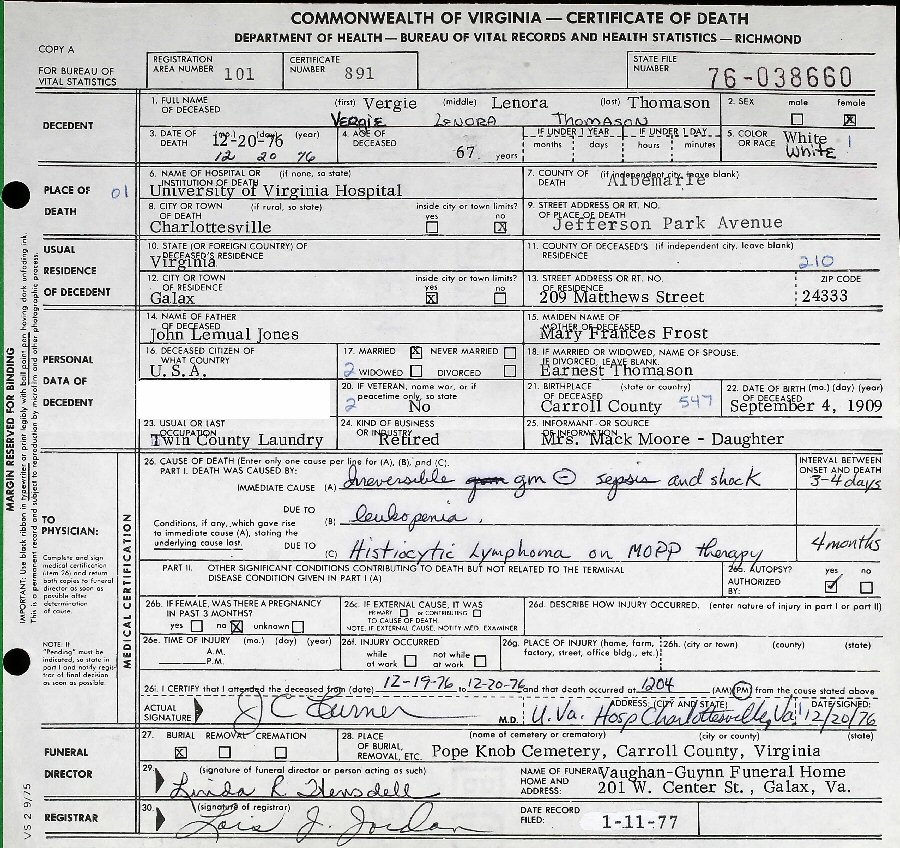 COMMONWEALTH OF VIRGINIA — CERTIFICATE OF DEATH
DEPARTMENT OF HEALTH — BUREAU OF VITAL RECORDS AND HEALTH STATISTICS — RICHMOND
COPY A
FOR BUREAU OF VITAL STATISTICS
REGISTRATION AREA NUMBER 101 CERTIFICATE NUMBER 891 STATE FILE NUMBER 76-038660
DECEDENT
1. FULL NAME OF DECEASED (first) Vergie (middle) Lenora (last) Thomason 2. SEX male female X
VERGIE LENORA THOMASON
3. DATE OF DEATH (mo.) (day) (year) 12-20-76 4. AGE OF DECEASED 67 years IF UNDER 1 YEAR months days IF UNDER 1 DAY hours minutes 5. COLOR OR RACE White 1
12 20 76 White
PLACE OF DEATH 01
6. NAME OF HOSPITAL OR INSTITUTION OF DEATH (if none, so state) 7. COUNTY OF DEATH (if independent city, leave blank)
University of Virginia Hospital Albemarle
8. CITY OR TOWN OF DEATH (if rural, so state) inside city or town limits? yes no X 9. STREET ADDRESS OR RT. NO. OF PLACE OF DEATH
Charlottesville Jefferson Park Avenue
USUAL RESIDENCE OF DECEDENT
10. STATE (OR FOREIGN COUNTRY) OF DECEASED'S RESIDENCE 11. COUNTY OF DECEASED'S RESIDENCE (if independent city, leave blank)
Virginia 210
12. CITY OR TOWN OF RESIDENCE inside city or town limits? yes X no 13. STREET ADDRESS OR RT. NO. OF RESIDENCE ZIP CODE
Galax 209 Matthews Street 24333
PERSONAL DATA OF DECEDENT
14. NAME OF FATHER OF DECEASED 15. MAIDEN NAME OF MOTHER OF DECEASED
John Lemual Jones Mary Frances Frost
16. DECEASED CITIZEN OF WHAT COUNTRY 17. MARRIED X NEVER MARRIED 18. IF MARRIED OR WIDOWED, NAME OF SPOUSE. IF DIVORCED, LEAVE BLANK
U. S. A. 2 WIDOWED DIVORCED Earnest Thomason
20. IF VETERAN, name war, or if peacetime only, so state 21. BIRTHPLACE OF DECEASED (state or country) 22. DATE OF BIRTH (mo.) (day) (year) OF DECEASED
2 No Carroll County 547 September 4, 1909
23. USUAL OR LAST OCCUPATION 24. KIND OF BUSINESS OR INDUSTRY 25. INFORMANT OR SOURCE OF INFORMATION
Twin County Laundry Retired Mrs. Mack Moore - Daughter
TO PHYSICIAN:
Complete and sign medical certification (item 26) and return both copies to funeral director as soon as possible after determination of cause.
NOTE: If "Pending" must be indicated, so state in part I and notify registrar of final decision as soon as possible.
MEDICAL CERTIFICATION
26. CAUSE OF DEATH (Enter only one cause per line for (A), (B), and (C). INTERVAL BETWEEN ONSET AND DEATH
PART I. DEATH WAS CAUSED BY:
IMMEDIATE CAUSE (A) Irreversible gm ⊖ sepsis and shock 3-4 days
DUE TO (B) leukopenia.
Conditions, if any, which gave rise to immediate cause (A), stating the underlying cause last.
DUE TO (C) Histiocytic Lymphoma on MOPP therapy 4 months
PART II. OTHER SIGNIFICANT CONDITIONS CONTRIBUTING TO DEATH BUT NOT RELATED TO THE TERMINAL DISEASE CONDITION GIVEN IN PART I (A) 26a. AUTOPSY? yes ✓ no
AUTHORIZED BY:
26b. IF FEMALE, WAS THERE A PREGNANCY IN PAST 3 MONTHS? yes no X unknown
26c. IF EXTERNAL CAUSE, IT WAS PRIMARY or CONTRIBUTING TO CAUSE OF DEATH. NOTE. IF EXTERNAL CAUSE, NOTIFY MED. EXAMINER
26d. DESCRIBE HOW INJURY OCCURRED. (enter nature of injury in part I or part II)
26e. TIME OF INJURY (mo.) (day) (year) A.M. P.M. 26f. INJURY OCCURRED while at work not while at work 26g. PLACE OF INJURY (home, farm, factory, street, office bldg., etc.) 26h. (city or town) (county) (state)
26i. I CERTIFY that I attended the deceased from (date) 12-19-76 to 12-20-76 and that death occurred at 1204 (AM) (PM) from the cause stated above
ACTUAL SIGNATURE J C Turner M.D. ADDRESS (CITY AND STATE) U. Va. Hosp Charlottesville, Va DATE SIGNED: 12/20/76
FUNERAL DIRECTOR
27. BURIAL X REMOVAL CREMATION 28. PLACE OF BURIAL, REMOVAL, ETC. (name of cemetery or crematory) (city or county) (state)
Pope Knob Cemetery, Carroll County, Virginia
29. (signature of funeral director or person acting as such) NAME OF FUNERAL HOME AND ADDRESS: Vaughan-Guynn Funeral Home
Linda R 201 W. Center St., Galax, Va.
REGISTRAR
30. (signature of registrar) DATE RECORD FILED: 1-11-77
Lois J. Jordan
MARGIN RESERVED FOR BINDING
IMPORTANT: Use black ribbon in typewriter or print legibly with ball point pen having dark unfading ink.
This is a permanent record and subject to reproduction by microfilm and other photographic process.
VS 2 9/75